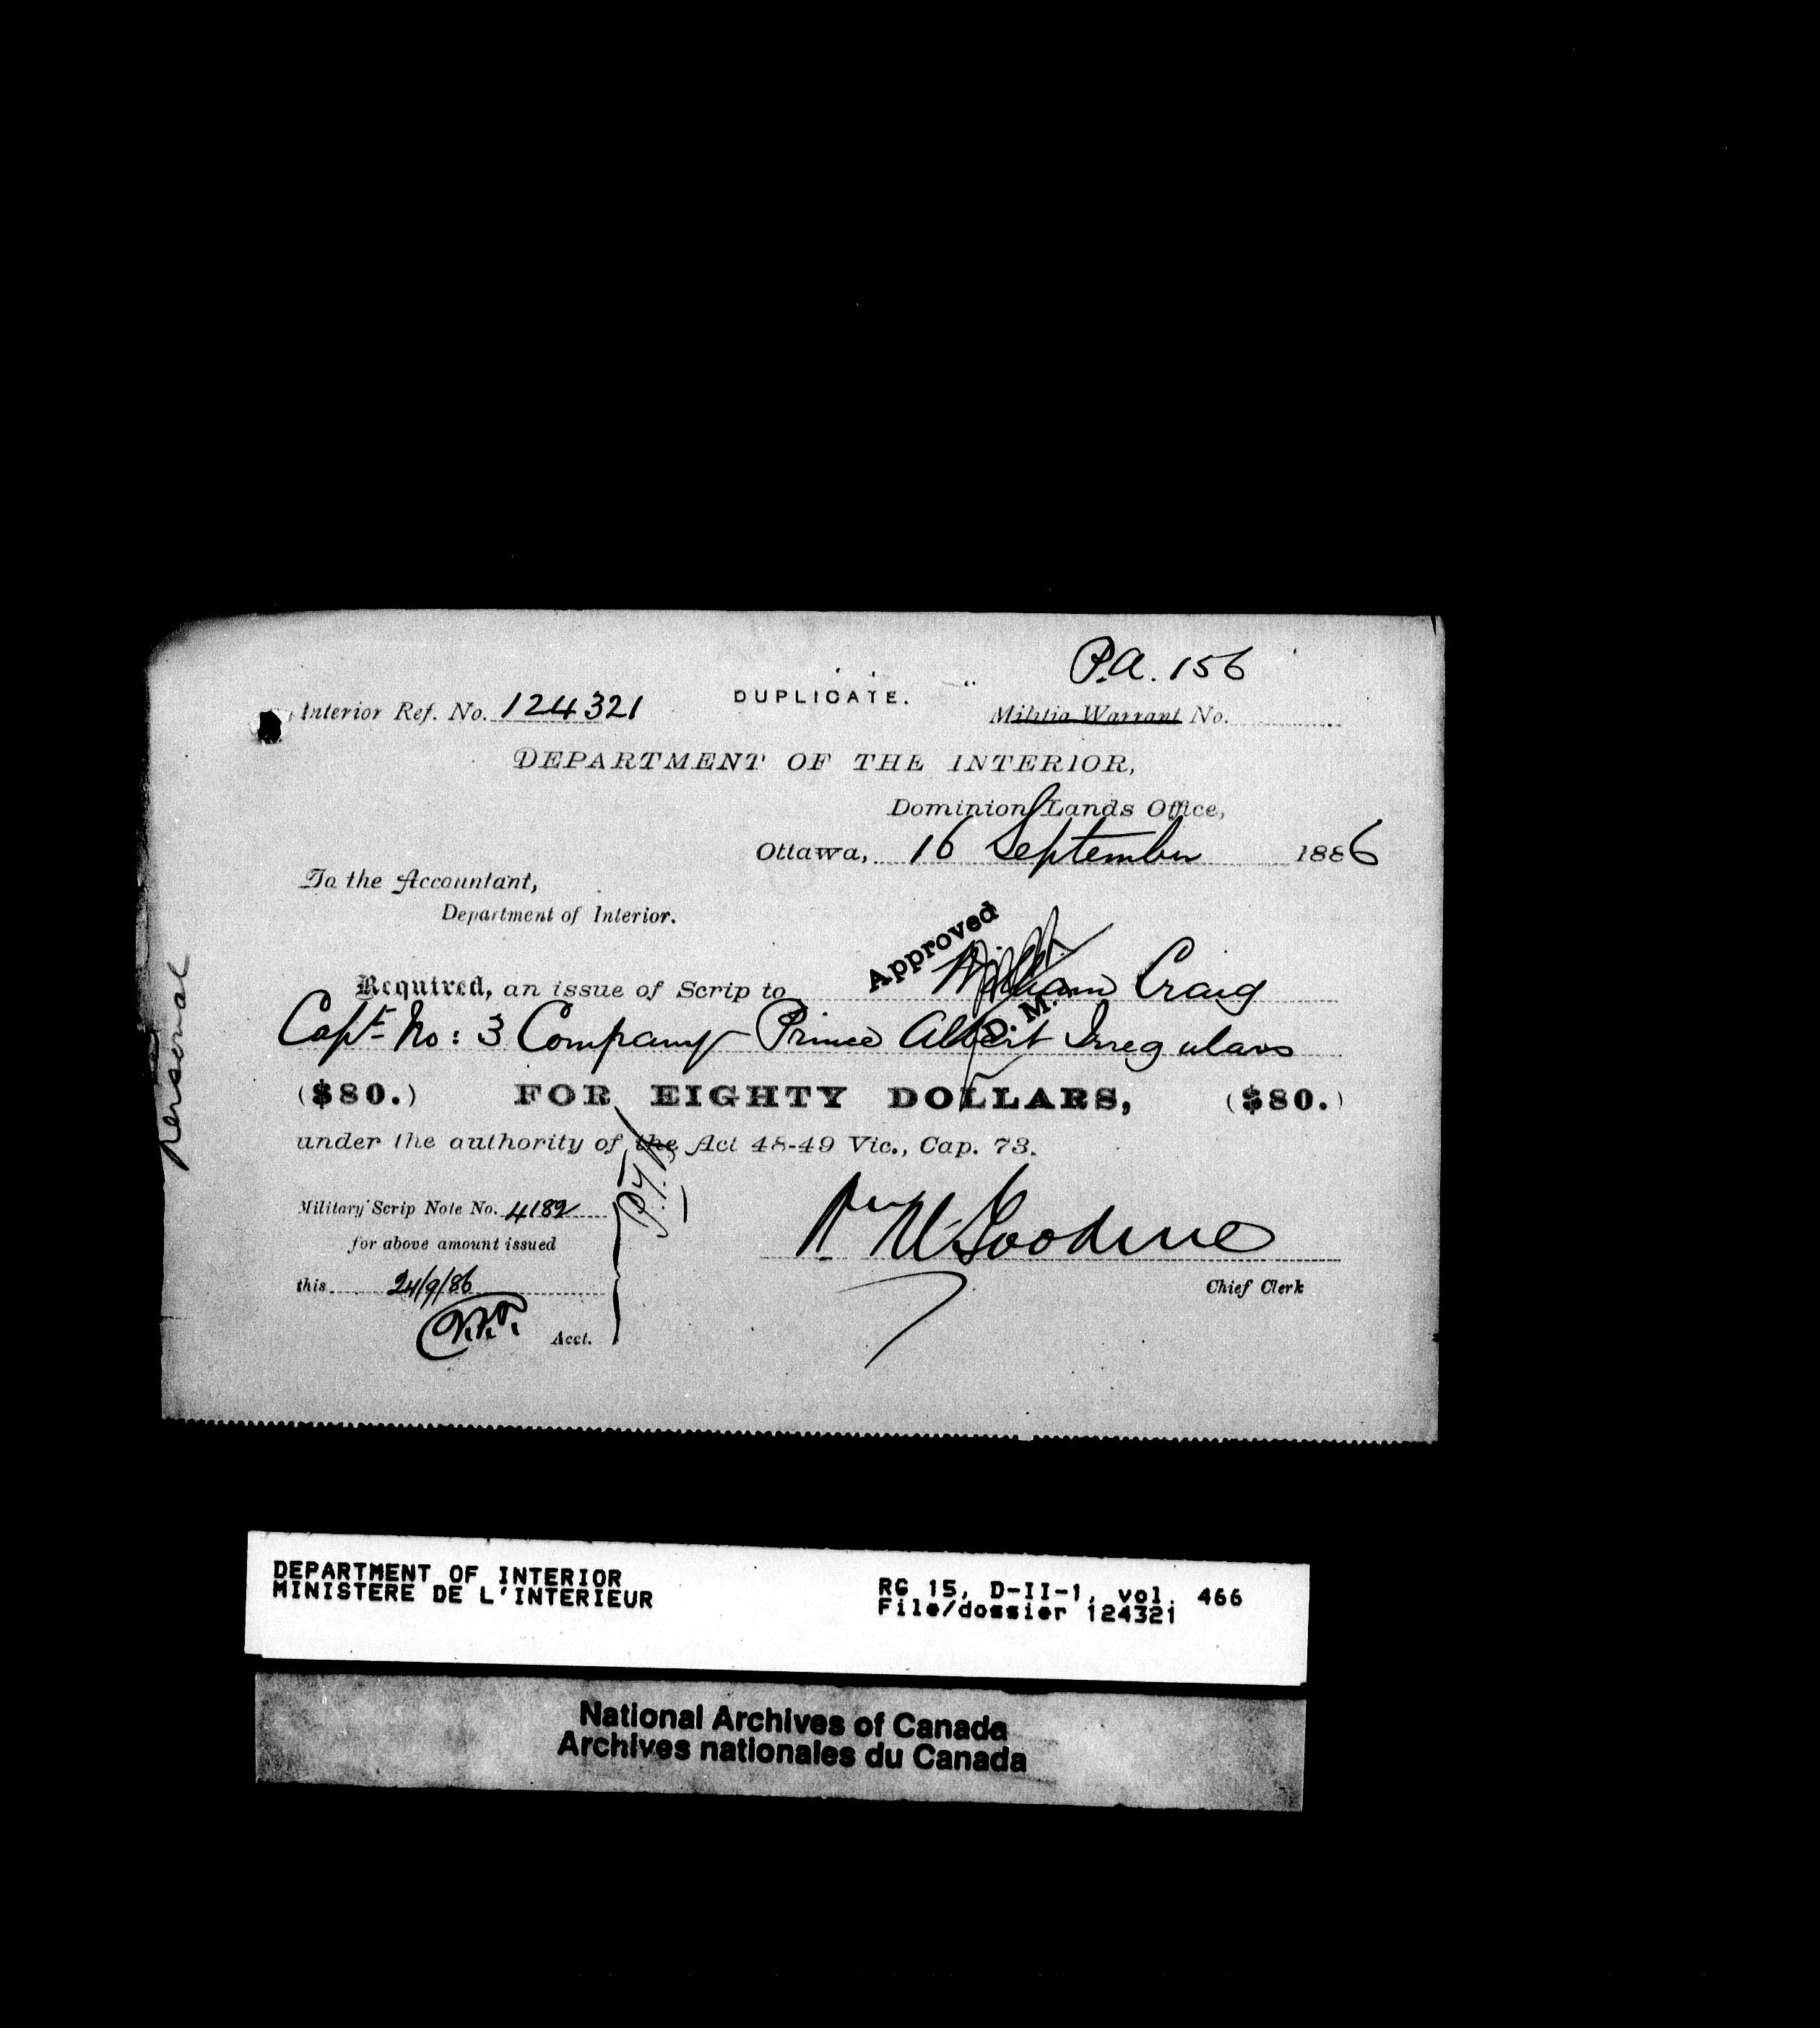 P.A. 156
Interior Ref. No. 124321
DUPLICATE.
Militia Warrant No.
DEPARTMENT OF THE INTERIOR,
Dominion Lands Office,
Ottawa, 16 September 1886
To the Accountant,
Department of Interior.
Approved
D. M.
Required, an issue of Scrip to William Craig
Capt. No: 3 Company Prince Albert Irregulars
($80.) FOR EIGHTY DOLLARS, ($80.)
under the authority of the Act 48-49 Vic., Cap. 73.
Personal
Military Scrip Note No. 4182
for above amount issued
this 24/9/86
Acct.
Chief Clerk
DEPARTMENT OF INTERIOR
MINISTERE DE L'INTERIEUR
RG 15, D-II-1, vol. 466
File/dossier 124321
National Archives of Canada
Archives nationales du Canada